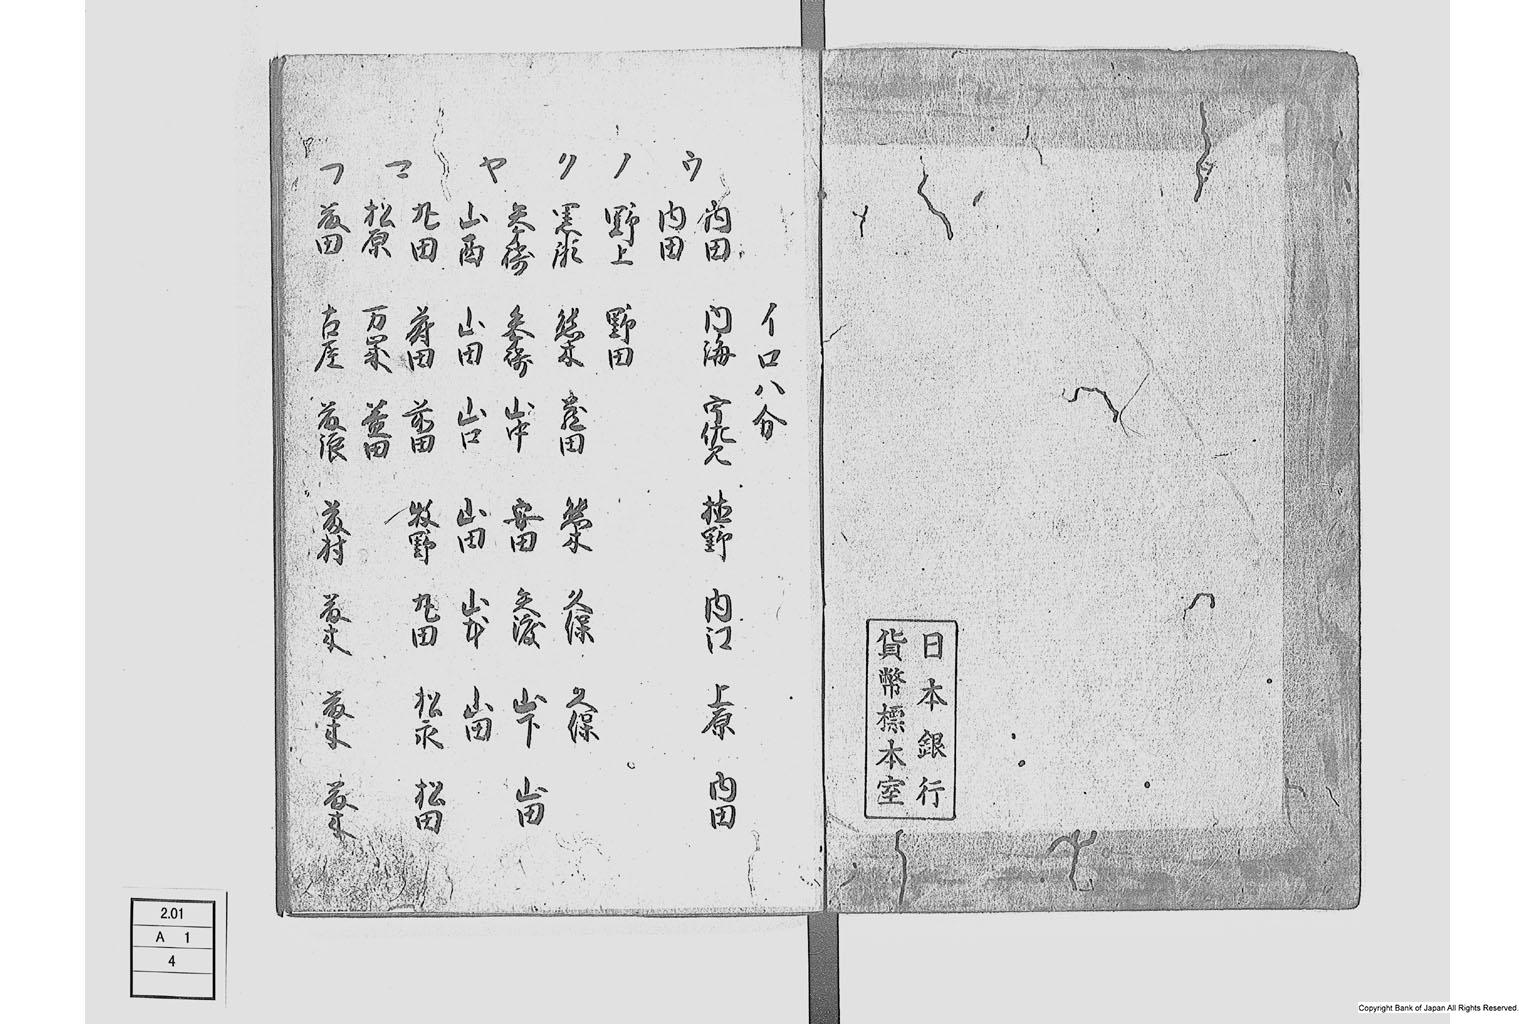 日本銀行
貨幣標本室
イロハ分
ウ 内田 内海 宇佐見 植野 内江 上原 内田
内田
ノ 野上 野田
ク 黒形 熊木 窪田 熊木 久保 久保
ヤ 矢嶋 山中 安田 矢後 山下 山田
山西 山田 山口 山田 山本 山田
マ 丸田 前田 前田 牧野 丸田 松永 松田
松原 万菜 益田
フ 藤田 古屋 藤浪 藤村 藤本 藤本 藤本
2.01
A 1
4
Copyright Bank of Japan All Rights Reserved.